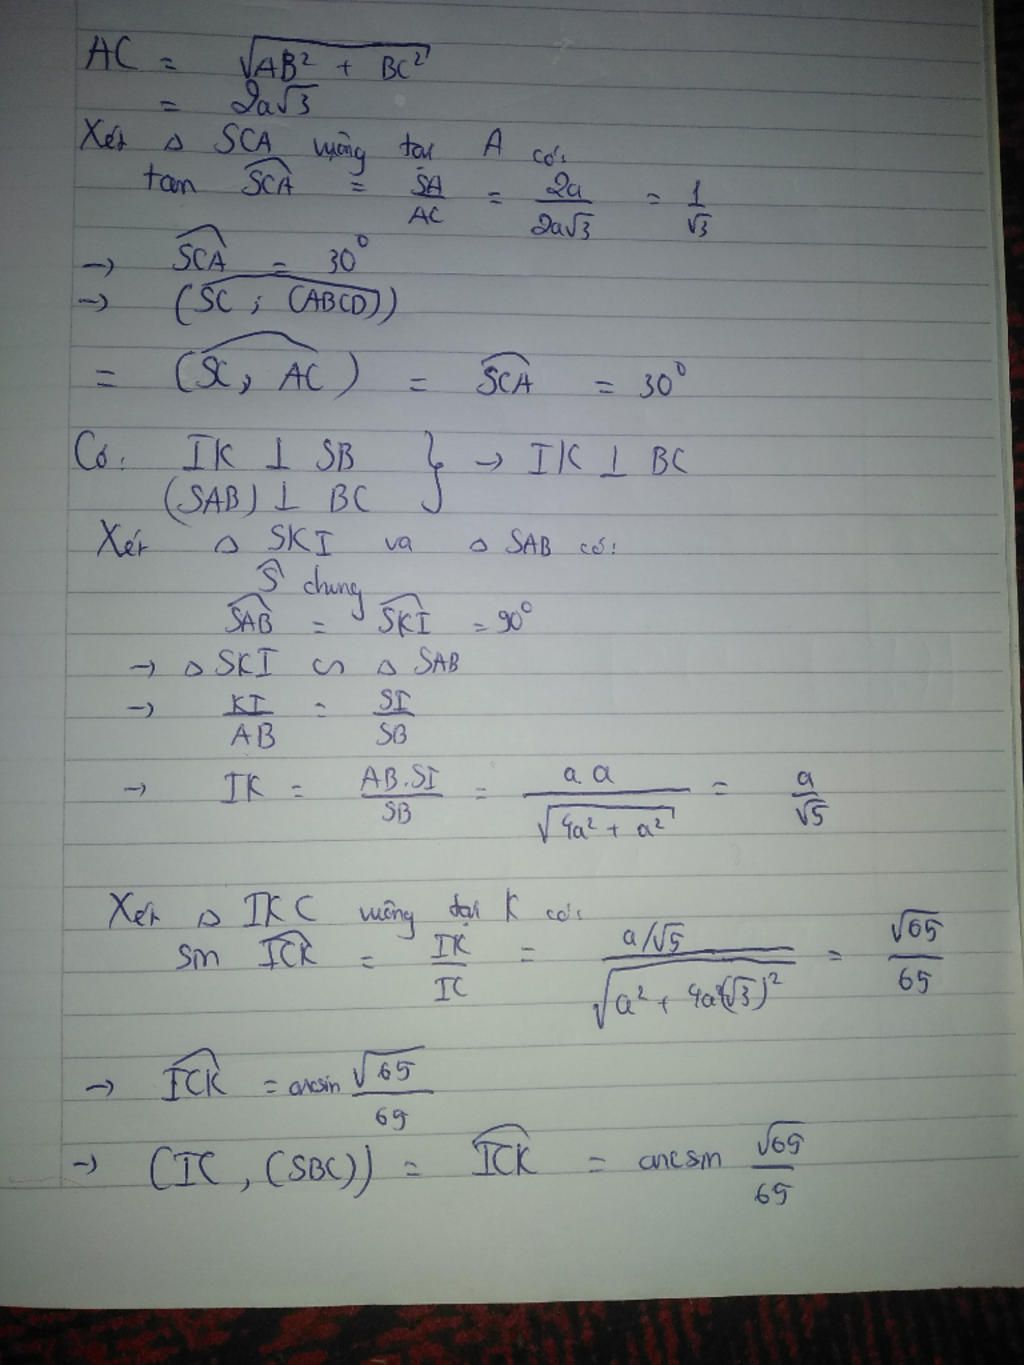 AC = √(AB² + BC²)
= 2a√3
Xét △ SCA vuông tại A có:
tan SCA^ = SA/AC = 2a/(2a√3) = 1/√3
→ SCA^ = 30⁰
→ (SC ; (ABCD))
= (SC, AC) = SCA^ = 30⁰
Có: IK ⊥ SB } → IK ⊥ BC
(SAB) ⊥ BC
Xét △ SKI va △ SAB có:
S^ chung
SAB^ = SKI^ = 90⁰
→ △ SKI ∽ △ SAB
→ KI/AB = SI/SB
→ IK = AB.SI/SB = a.a/√(4a² + a²) = a/√5
Xét △ IKC vuông tại K có:
sin ICK^ = IK/IC = (a/√5)/√(a² + 4a²(√3)²) = √65/65
→ ICK^ = arcsin √65/65
→ (IC, (SBC)) = ICK^ = arcsin √65/65